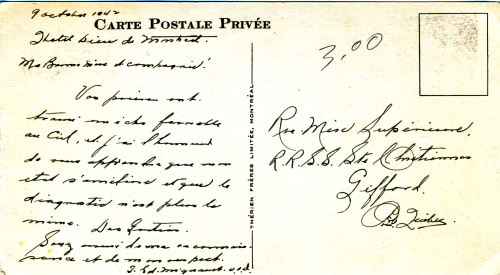 9 octobre 1942
CARTE POSTALE PRIVÉE
Hotel Dieu de Montreal.
Ma Bonne Mère et compagnie!
Vos prières ont
trouvé un écho favorable
au Ciel, et j'ai l'honneur
de vous apprendre que mon
état s'améliore et que le
diagnostic n'est plus le
même. Deo Gratias.
Soyez assurée de ma reconnais-
sance et de mon respect.
J. Ed. Mignault
THÉRIEN FRÈRES LIMITÉE, MONTRÉAL
3.00
Rev Mère Supérieure.
R.R. S.S. Ste Chrétienne
Giffard.
Québec.